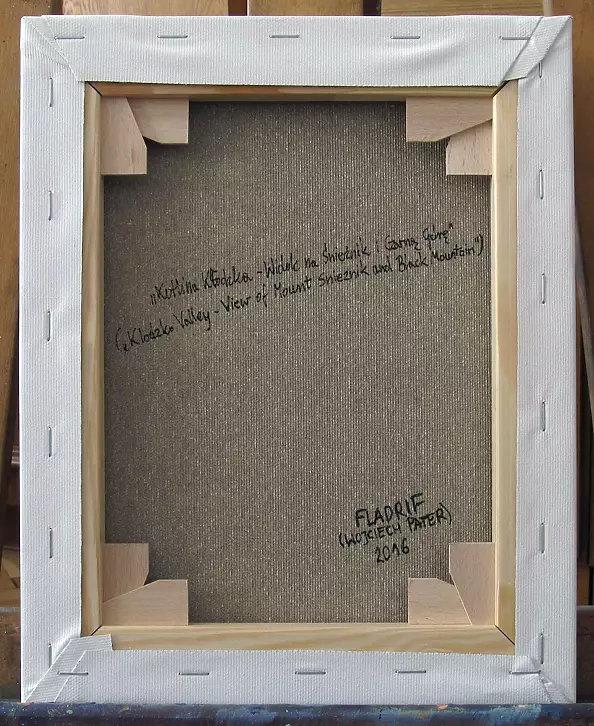 „Kotlina Kłodzka - Widok na Śnieżnik i Czarną Górę"
(„Klodzko Valley - View of Mount Snieznik and Black Mountain")
FLADRIF
(WOJCIECH PATER)
2016